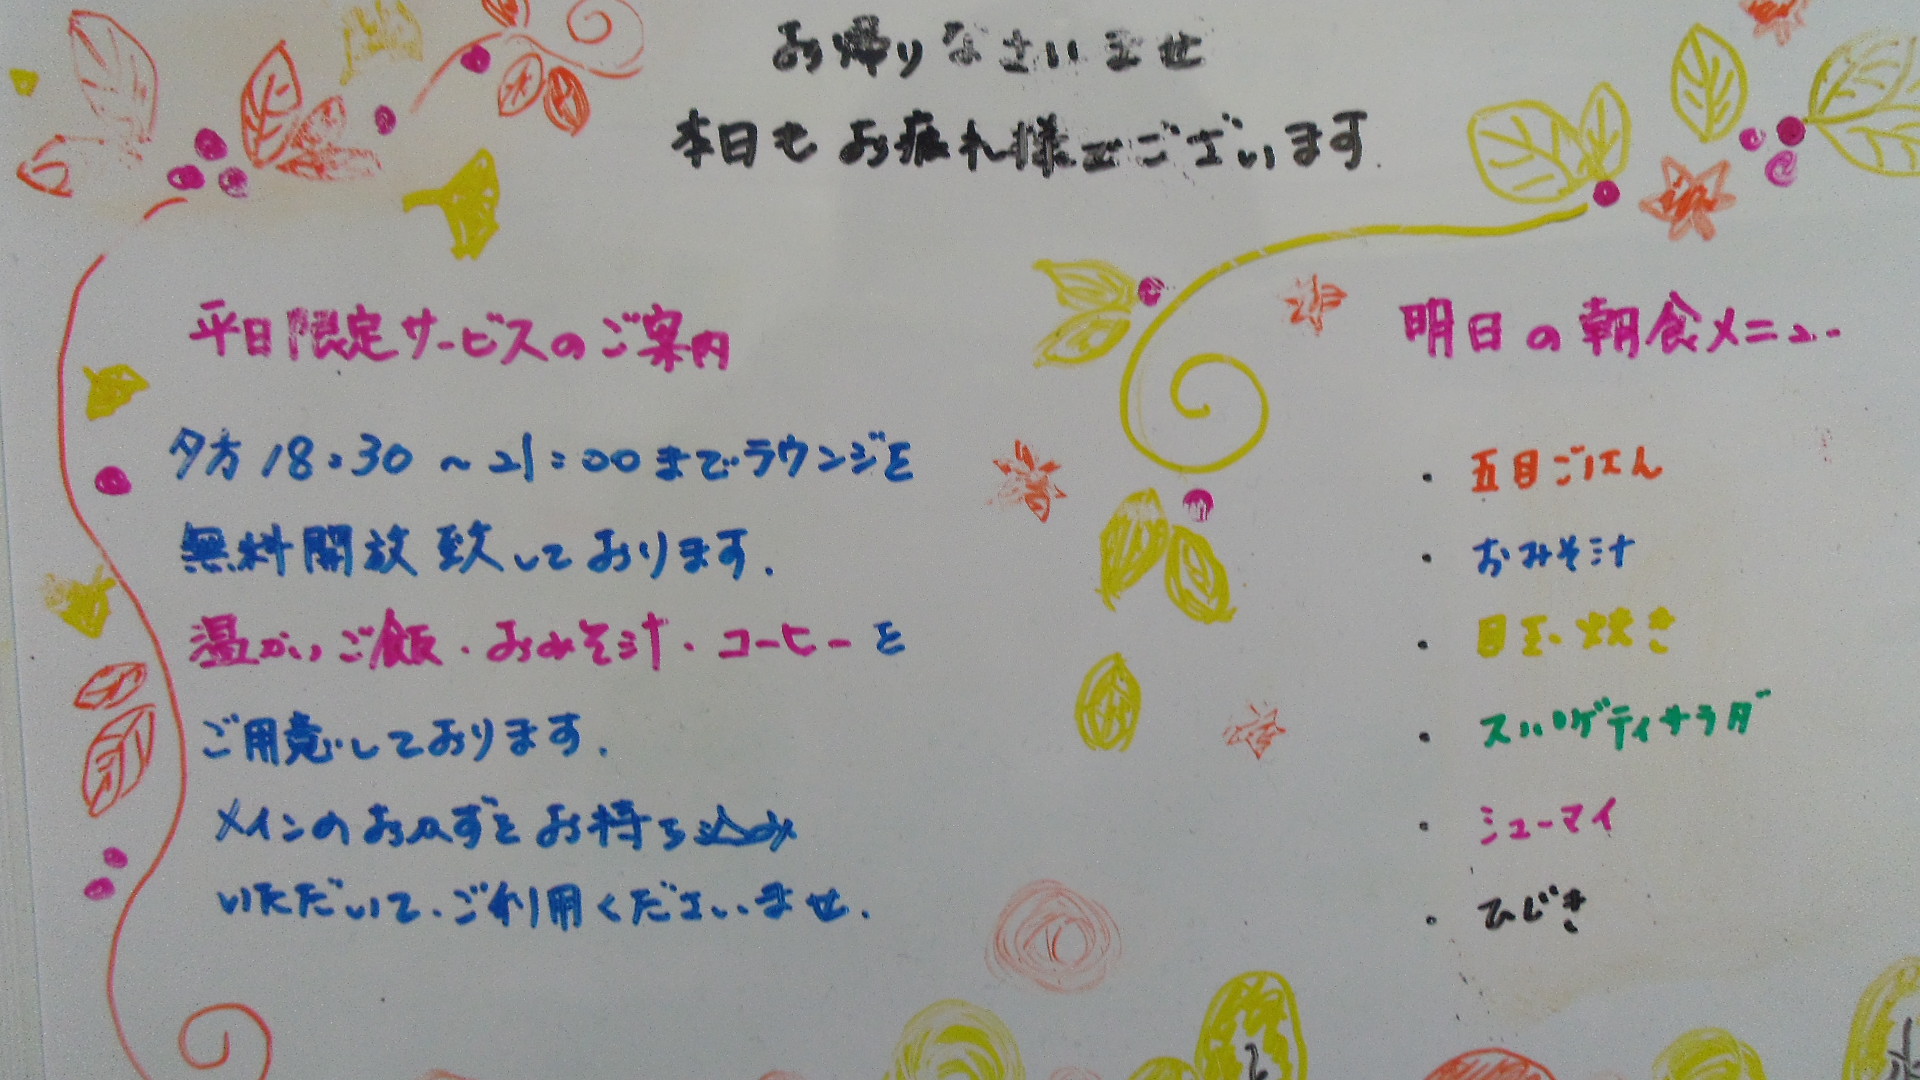 お帰りなさいませ
本日もお疲れ様でございます.
平日限定サービスのご案内
夕方18:30~21:00までラウンジを
無料開放致しております.
温かいご飯・おみそ汁・コーヒーを
ご用意しております.
メインのおかずをお持ち込み
いただいて、ご利用くださいませ.
明日の朝食メニュー
・五目ごはん
・おみそ汁
・目玉焼き
・スパゲティサラダ
・シューマイ
・ひじき